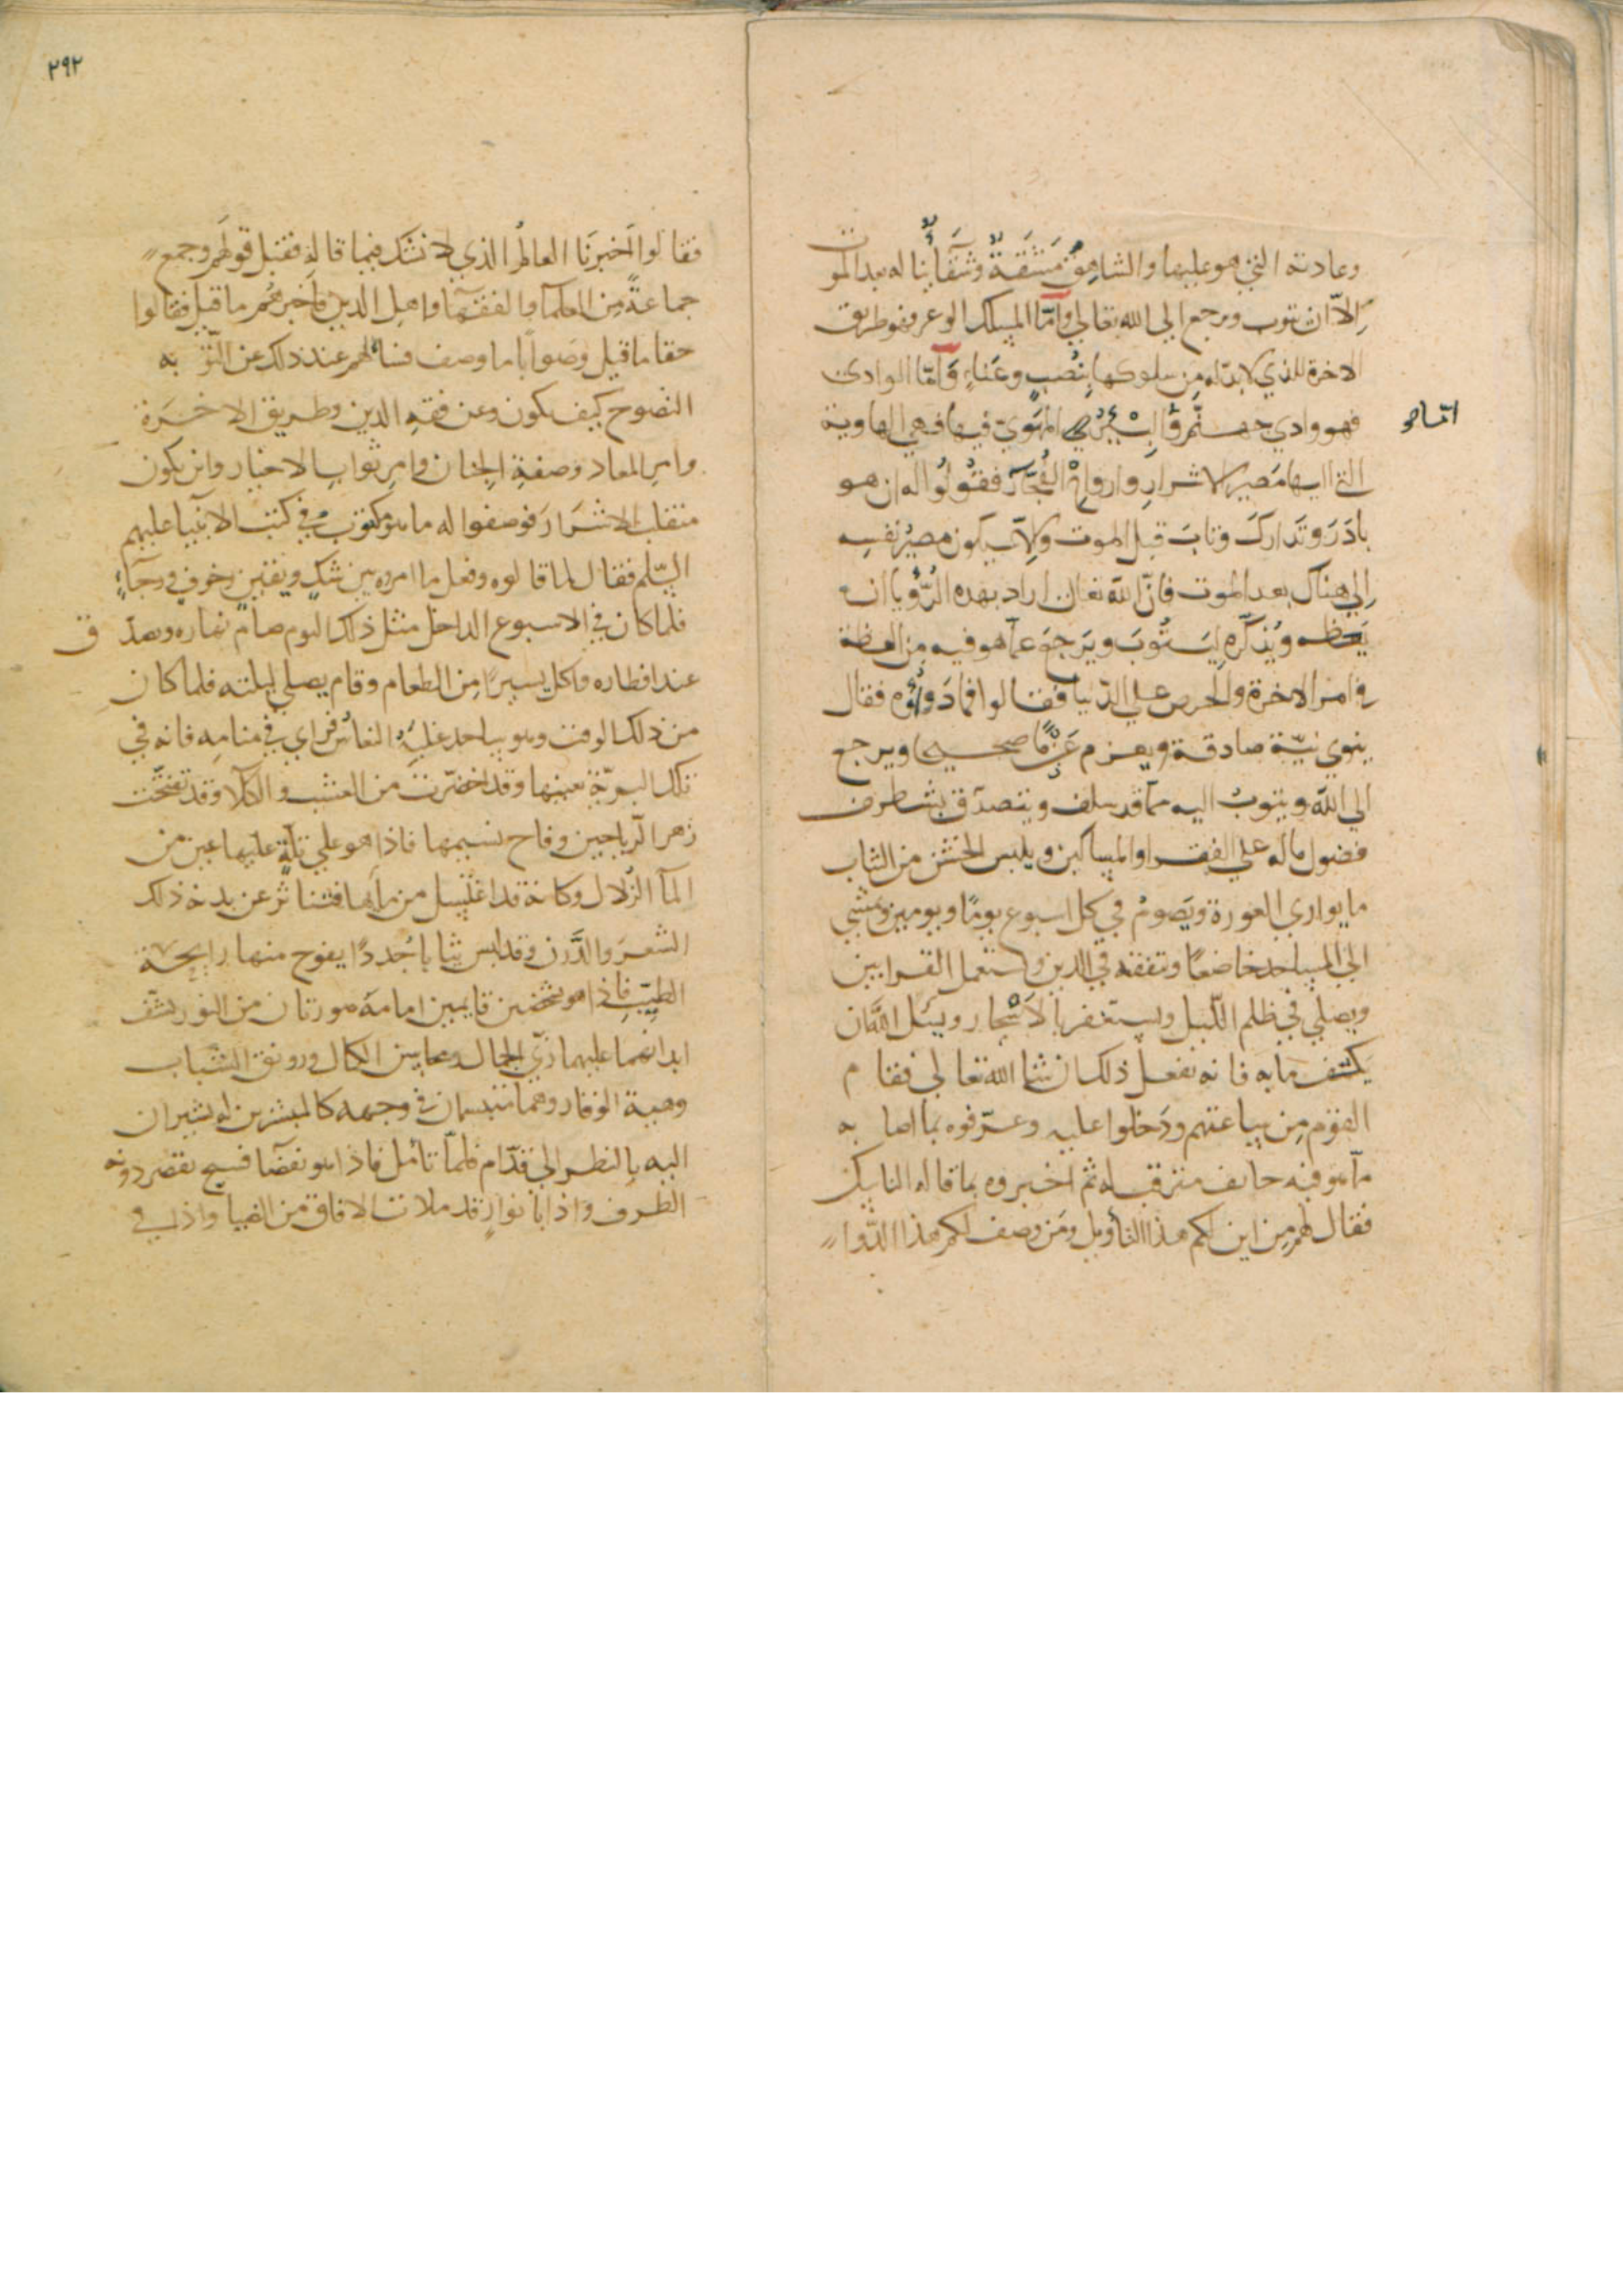 وعادته التي هو عليها والشاهق مَشَقَةٌ وشَقَاٌ بنا له بعد الموت
إلاّ ان يتوب ويرجع الى الله تعالى وأمّا المسلك الوعر فهو طريق
الاخرة للذي لا بدّ له مِن سلوكها بِنُصبٍ وعَناءٍ وَأمّا الوادى
فهو وادي جهنّم والبير المهوي فيها فهي الهاوية
انما هو
التي اليها مَصير الاشرار وارواح الفُجّار فقُولُوا له ان هو
بادَرَ وتَدارَكَ وتابَ قبل الموت وإلاّ سيكون مصيرُ نفسِه
إلى هناك بعد الموت فانّ الله تعالى اراد بهذه الرُّؤيا ان
يَعظه ويُذكّره لِيَتُوبَ ويَرجعَ عمآ هو فيه مِن الغفلة
في امر الاخرة والحرص على الدّنيا فقالوا فما دَوُاؤُه فقال
ينوي نيّة صادقة ويعزم عَزمًا صحيحا ويرجع
الى الله ويتوبُ اليه ممّا قد سلف ويتصدّق بشطر من
فضول ماله على الفقرا والمساكين ويلبس الخشن من الثياب
ما يواري العورة ويَصومُ في كل اسبوع يومًا ويومين ويمشي
الى المساجد خاضعًا ويتفقه في الدين ويستعمل القرابين
ويصلي في ظلم اللّيل ويستغفر بالاَسْحار ويسَئل اللّهَ ان
يَكشف ما به فانه يفعل ذلك ان شا الله تعالى فقام
القوم مِن ساعتهم ودَخلوا عليه وعرّفوه بما اصابه
مآ هو فيه خايف مترقب له ثم اخبروه بما قاله الناسك
فقال لهم مِن اين لكم هذا التأويل ومَن وصف لكم هذا الدّوا
٢٩٢
فقالوا اَخبرَنَا العالِمُ الذي لا نَشك فيما قاله فقبل قولهم وجمع
جماعةً مِن العلمآ والفقهآ واهل الدين فاخبرهُم ما قيل فقالوا
حقا ما قيل وصوابًا ما وصف فسالهم عند ذلك عن التّوبه
النصوح كيف يكون وعن فقهِ الدين وطريق الاخرَة
وامر المعاد وصفةِ الجنان وامر ثواب الاخيار واين يكون
منقلب الاشرَار فوصفوا له ما هو مكتوبٌ في كتب الانبيا عليهم
السّلم فقال لما قالوه وفعل ما امروه بين شكٍ ويقينٍ وخوفٍ ورجآءٍ
فلما كان في الاسبوع الداخل مثل ذلك اليوم صام نهاره وتصدّق
عند افطاره واكل يسيرًا مِن الطعام وقام يصلى ليلته فلما كان
من ذلك الوقت وهو ساجد غلبَهُ النعاسُ فراى في منامِه فانه في
تلك البريّة بعينها وقد اخضرّت من العشب والكلآ وقد تفتّحت
زهر الرّياحين وفاح نسيمها فاذا هو على تلّةٍ عليها عين من
المآ الزُلال وكانه قد اغتسل من مآءها فتناثر عن بدنه ذلك
الشعرَ والدَّرَن وقد لبس ثيابا جُددًا يفوح منها رايحة
الطيبِ فاذا هو بشخصين قايمين امامهَ صورتان من النور يشفّ
ابدانهما عليهما زيّ الجمال ومحاسن الكمال ورونق الشباب
وهيبة الوقار وهما متبسمان في وجهه كالمبشرين له يشيران
اليه بالنظر الى قدّام فلمّا تأمّل فاذا هو بفضآ فسيح يقصر دونه
الطرف واذا بانوارٍ قد ملات الافاق من الضيا واذا في